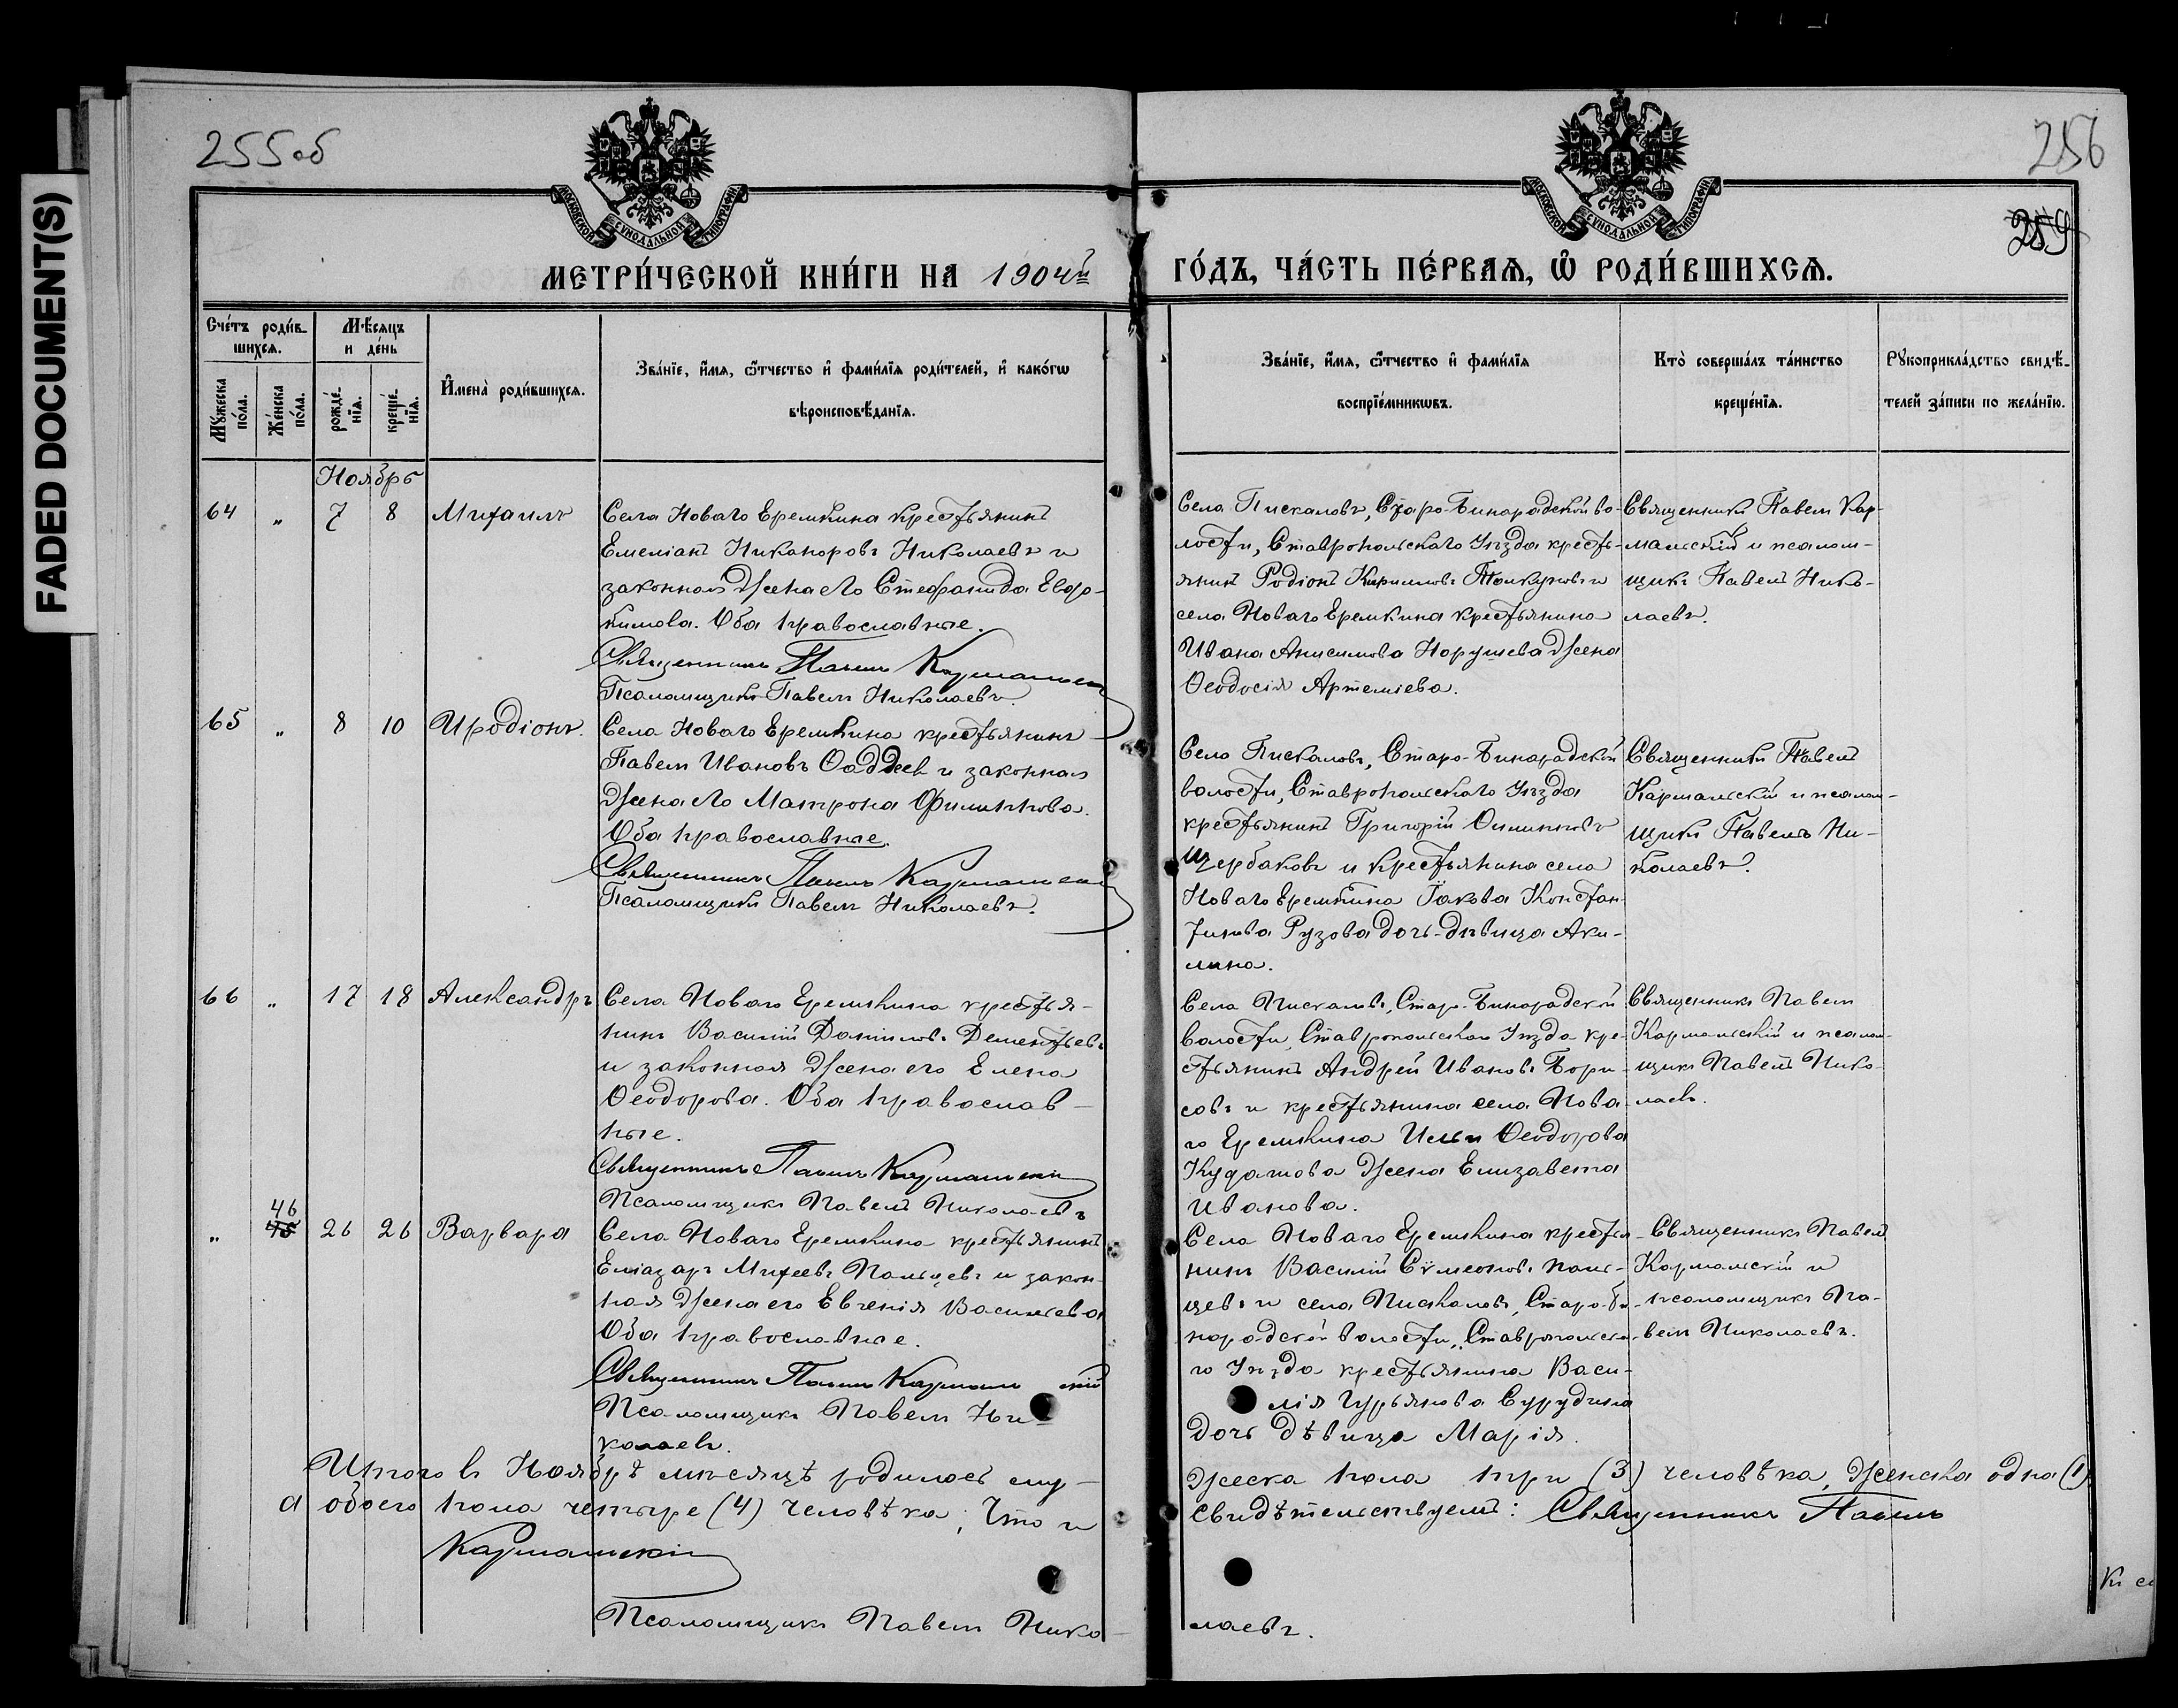 FADED DOCUMENT(S)
255об
256
259
МОСКОВСКОЙ СѴНОДАЛЬНОЙ ТИПОГРАФІИ
МОСКОВСКОЙ СѴНОДАЛЬНОЙ ТИПОГРАФІИ
МЕТРИ́ЧЕСКОЙ КНИ́ГИ НА 1904й
ГО́ДЪ, ЧА́СТЬ ПЕ́РВАѦ, Ѡ҆ РОДИ́ВШИХСѦ.
Сче́тъ роди́в-
шихсѧ.
Мꙋ́жеска по́ла.
Же́нска по́ла.
Мѣ́сѧцъ
и де́нь
рожде́-нїѧ.
креще́-нїѧ.
И҆мена̀ роди́вшихсѧ.
Зва́нїе, и҆́мѧ, ѻ҆́тчество и҆ фами́лїѧ роди́телей, и҆ како́гѡ
вѣроисповѣ́данїѧ.
Зва́нїе, и҆́мѧ, ѻ҆́тчество и҆ фами́лїѧ
воспрїе́мникѡвъ.
Кто̀ соверша́лъ та́инство
креще́нїѧ.
Рꙋкоприкла́дство свидѣ́-
телей за́писи по жела́нїю.
Ноябрь
64 „ 7 8 Михаилъ
Села Новаго Еремкина крестьянинъ
Емеліанъ Никаноровъ Николаевъ и
законная жена его Стефанида Евдо-
кимова. Оба православные.
Священникъ Павелъ Кармальскій
Псаломщикъ Павелъ Николаевъ.
Села Пискаловъ, Старо-Бинарадской во-
лости, Ставропольскаго Уѣзда кресть-
янинъ Родіонъ Кириловъ и
села Новаго Еремкина крестьянина
Ивана Анисимова Норушева жена
Ѳеодосія Артеміева.
Священникъ Павелъ Кар-
мальскій и псалом-
щикъ Павелъ Нико-
лаевъ.
65 „ 8 10 Иродіонъ.
Села Новаго Еремкина крестьянинъ
Павелъ Ивановъ Ѳаддеев и законная
жена его Матрона Филиппова.
Оба православные.
Священникъ Павелъ Кармальскій
Псаломщикъ Павелъ Николаевъ.
Села Пискаловъ, Старо-Бинарадской
волости, Ставропольскаго Уѣзда
крестьянинъ Григорій Филипповъ
Щербаковъ и крестьянина села
Новаго Еремкина Іакова Констан-
тинова Рузова дочь-дѣвица Аки-
лина.
Священникъ Павелъ
Кармальскій и псалом-
щикъ Павелъ Ни-
колаевъ.
66 „ 17 18 Александръ
Села Новаго Еремкина крестья-
нинъ Василій Даніиловъ Дементьевъ
и законная жена его Елена
Ѳеодорова. Оба православ-
ные.
Священникъ Павелъ Кармальскій
Псаломщикъ Павелъ Николаевъ
Села Пискаловъ, Старо-Бинарадской
волости, Ставропольскаго Уѣзда кре-
стьянинъ Андрей Ивановъ Бори-
совъ и крестьянина села Нова-
го Еремкина Ильи Ѳеодорова
Кудашова жена Елизавета
Иванова.
Священникъ Павелъ
Кармальскій и псалом-
щикъ Павелъ Нико-
лаевъ.
46
„ 45 26 26 Варвара
Села Новаго Еремкина крестьянинъ
Еліазаръ Михеевъ Пальцевъ и закон-
ная жена его Евгенія Васильева
Оба православные.
Священникъ Павелъ Кармальскій
Псаломщикъ Павелъ Ни-
колаевъ.
Села Новаго Еремкина крестья-
нинъ Василій Сѵмеоновъ Паль-
цевъ и села Пискаловъ, Старо-Би-
нарадской волости, Ставропольска-
го Уѣзда крестьянина Васи-
лія Гурьянова Сурудина
дочь дѣвица Марія.
Священникъ Павелъ
Кармальскій и
псаломщикъ Па-
велъ Николаевъ.
Итого въ Ноябрѣ мѣсяцѣ родилось му-
жеска пола три (3) человѣка, женска одна (1)
а обоего пола четыре (4) человѣка; Что и
свидѣтельствуемъ: Священникъ Павелъ
Кармальскій
Псаломщикъ Павелъ Нико-
лаевъ.